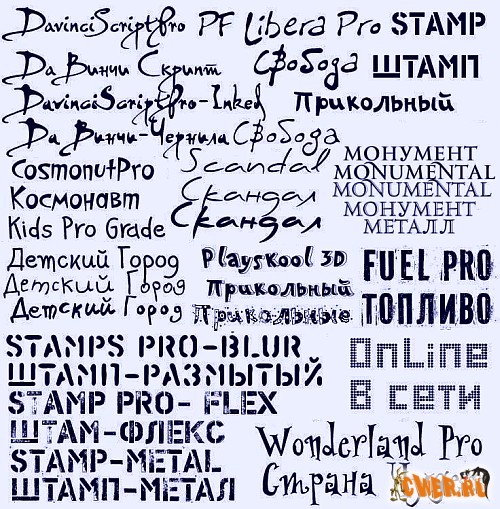 DavinciScriptPro
PF Libera Pro
STAMP
Да Винчи Скрипт
Свобода
ШТАМП
DavinciScriptPro-Inked
Прикольный
Да Винчи-Чернила
Свобода
CosmonutPro
Scandal
МОНУМЕНТ
MONUMENTAL
Космонавт
Скандал
MONUMENTAL
МОНУМЕНТ
Kids Pro Grade
Скандал
МЕТАЛЛ
Детский Город
Playskool 3D
FUEL PRO
Детский Город
Прикольный
Детский Город
Прикольные
ТОПЛИВО
STAMPS PRO-BLUR
OnLine
ШТАМП-РАЗМЫТЫЙ
STAMP PRO- FLEX
В сети
ШТАМ-ФЛЕКС
STAMP-METAL
Wonderland Pro
ШТАМП-МЕТАЛ
Страна
CWER.RU